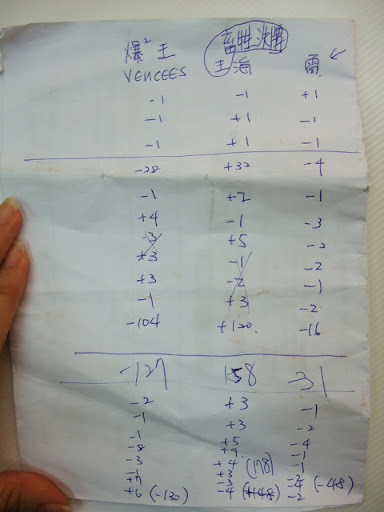 爆² 王 畜牲決鬥
VENCEES 王海 雷 ↙
-1 -1 +1
-1 +1 -1
-1 +1 -1
-28 +32 -4
-1 +2 -1
+4 -1 -3
+5 -2
+3 -1 -2
+3 -2 -1
-1 +3 -2
-104 +120. -16
-127 158 -31
-2 +3 -1
-1 +3 -2
-1 +5 -4
-8 +9 -1
-3 +4 (178) -1
-1 +3
+7 -3 (-48)
+6 (-130) -4 -2